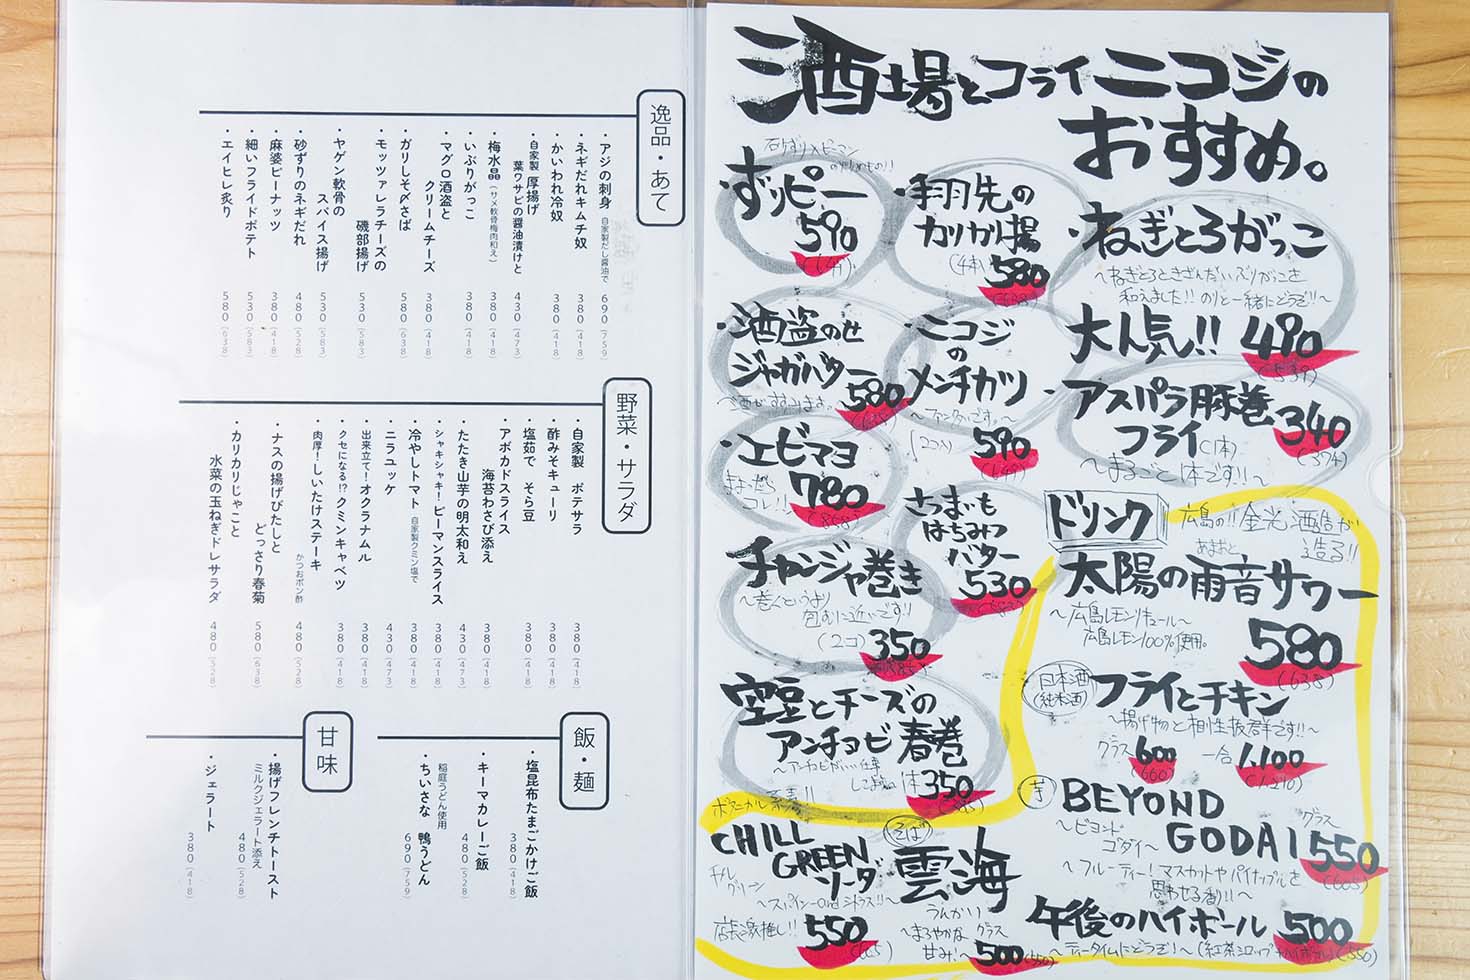 逸品・あて
・アジの刺身 自家製だし醤油で 690(759)
・ネギだれキムチ奴 380(418)
・かいわれ冷奴 380(418)
・自家製 厚揚げ
葉ワサビの醤油漬けと 430(473)
・梅水晶(サメ軟骨梅肉和え) 380(418)
・いぶりがっこ 380(418)
・マグロ酒盗と
クリームチーズ 380(418)
・ガリしそ〆さば 580(638)
・モッツァレラチーズの
磯部揚げ 530(583)
・ヤゲン軟骨の
スパイス揚げ 530(583)
・砂ずりのネギだれ 480(528)
・麻婆ピーナッツ 380(418)
・細いフライドポテト 530(583)
・エイヒレ炙り 580(638)
野菜・サラダ
・自家製 ポテサラ 380(418)
・酢みそキューリ 380(418)
・塩茹で そら豆 380(418)
・アボカドスライス
海苔わさび添え 380(418)
・たたき山芋の明太和え 430(473)
・シャキシャキ!ピーマンスライス 380(418)
・冷やしトマト 自家製クミン塩で 380(418)
・ニラユッケ 430(473)
・出来立て!オクラナムル 380(418)
・クセになる!?クミンキャベツ 380(418)
・肉厚!しいたけステーキ
かつおポン酢 480(528)
・ナスの揚げびたしと
どっさり春菊 580(638)
・カリカリじゃこと
水菜の玉ねぎドレサラダ 480(528)
飯・麺
・塩昆布たまごかけご飯 380(418)
・キーマカレーご飯 480(528)
稲庭うどん使用
・ちいさな 鴨うどん 690(759)
甘味
・揚げフレンチトースト
ミルクジェラート添え 480(528)
・ジェラート 380(418)
酒場とフライニコジの
おすすめ。
・ずりピー
590
・手羽先の
カリカリ揚
(4本) 580
(638)
・ねぎとろがっこ
〜ねぎとろときざんだいぶりがっこを
和えました!!のりと一緒にどうぞ!!〜
大人気!! 490
(539)
・酒盗のせ
ジャガバター
580
・ニコジ
の
メンチカツ
(2コ入) 590
(649)
・アスパラ豚巻
フライ(1本) 340
(374)
〜まるごと1本です!!〜
・エビマヨ
780
(858)
・さつまいも
はちみつ
バター
530
・チャンジャ巻き
〜巻くというより
包むに近いです!!
(2コ) 350
・空豆とチーズの
アンチョビ春巻
1本 350
ドリンク
広島の!!金光酒造が
造る!!
あまおと
太陽の雨音サワー
〜広島レモンリキュール〜
広島レモン100%使用。
580
(638)
日本酒
(純米酒)
フライとチキン
〜揚げ物と相性抜群です!!〜
グラス 600
(660)
一合 1,100
(1,210)
芋
BEYOND
GODAI
〜ビヨンド
ゴダイ〜
グラス
550
(605)
〜フルーティー!マスカットやパイナップルを
思わせる香り!!〜
ボタニカル系!!
CHILL
GREEN
ソーダ
チル
グリーン
〜スパイシーandシトラス!!〜
店長激推し!! 550
(605)
そば
雲海
うんかい
〜まろやかな
甘み!〜
グラス
500
(550)
午後のハイボール 500
(550)
〜ティータイムにどうぞ!〜